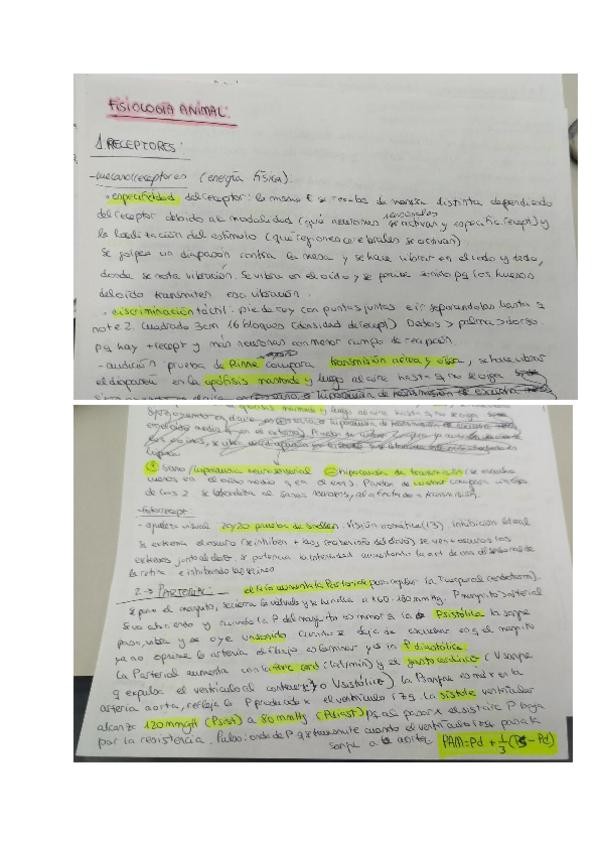 FISIOLOGÍA ANIMAL:
1. RECEPTORES:
-mecanorreceptores (energía física).
· especificidad del receptor: la misma E se recibe de manera distinta dependiendo
del receptor debido a modalidad (qué neuronas sensoriales se activan y especific. recept) y
la localización del estímulo (qué regiones cerebrales se activan)
se golpea un diapasón contra la mesa y se hace vibrar en el codo y dedo,
donde se nota vibración. Se vibra en el oído y se percibe sonido pq los huesos
del oído transmiten esa vibración.
· discriminación táctil: pie de rey con puntas juntas e ir separándolas hasta q
note 2. Cuadrado 3cm 16 bloques (densidad de recept) Dedos > palma > dorso
pq hay + recept y más neuronas con menor campo de recepción.
- audición prueba de Rinne compara transmisión aérea y ósea, se hace vibrar
el diapasón en la apófisis mastoide y luego al aire hasta q no se oiga
apófisis mastoide y luego al aire hasta q no se oiga
+ sano/hipoacusia neurosensorial - hipoacusia de transmisión (se escucha
menos en el oído medio q en el ext). Prueba de weber compara
los 2 se lateraliza al sano neuros, al afectado transmisión.
-fotorecept
- agudeza visual 20/20 prueba de snellen. Visión cromática (13). inhibición lateral
se ven + oscuros los
extremos junto al claro se potencia la intensidad aumentando la act de una de las neuronas de
la retina e inhibiendo las
2 → P ARTERIAL el frío aumenta la P arterial para regular la T corporal
se pone el manguito, se cierra la válvula y se hincha a 160-180 mmHg. P manguito > arterial
Se va abriendo y cuando la P del manguito es menor q la de P sistólica la sangre
pasa, vibra y se oye un sonido cuando se deja de escuchar es q el manguito
ya no oprime la arteria el flujo es laminar y es la P diastólica.
La P arterial aumenta con la frec card (lat/min) y el gasto cardiaco (V sangre
q expulsa el ventrículo al contraerse) o V sistólico) La P sangre es max en la
arteria aorta, refleja la P producida x el ventrículo izq. La sístole ventricular
alcanza 120 mmHg (P sist) a 80 mmHg (P diast) pq al pasar x el sist circ P baja
por la resistencia. Pulso: onda de P q se transmite cuando el ventrículo izq pasa la
sangre a la aorta. PAM = Pd + 1/3 (Ps - Pd)